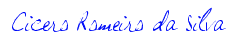 Cicero Romeiro da Silva